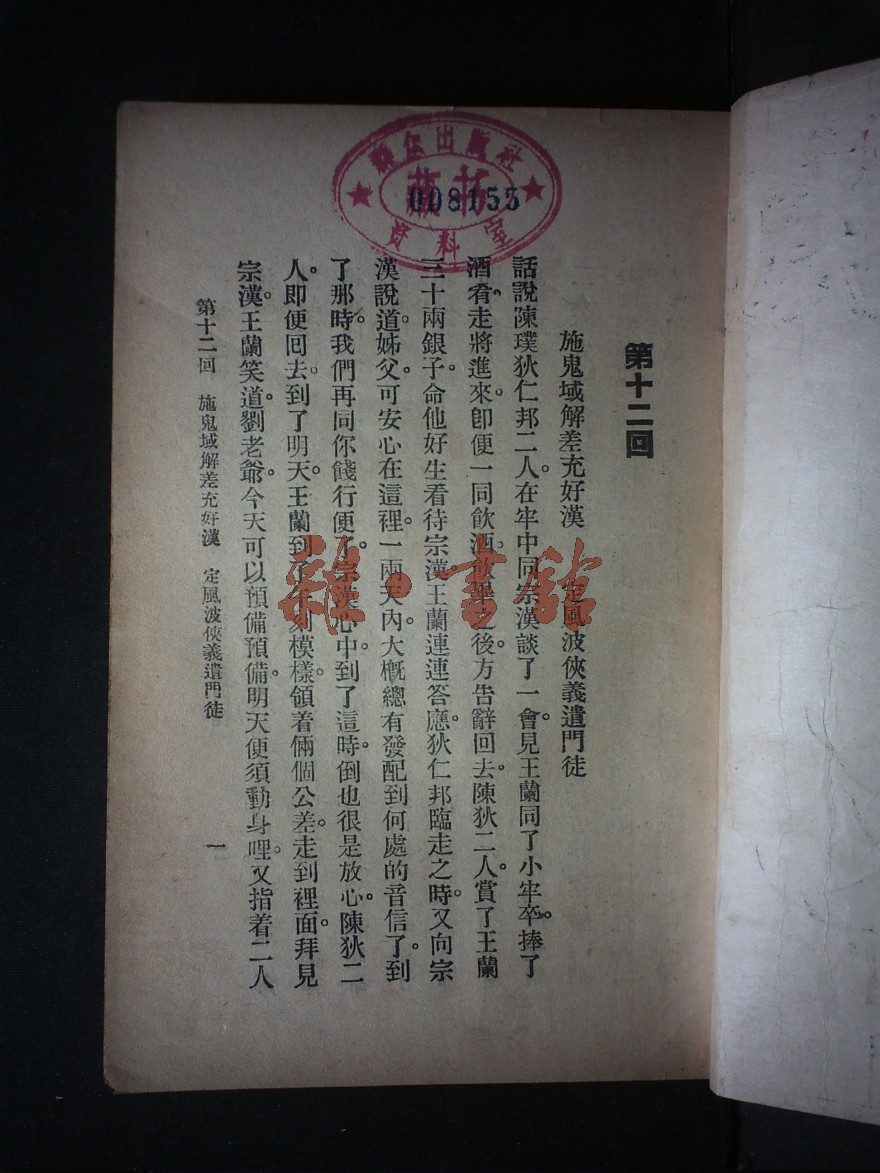 出版社
008155
資料室
第十二回
施鬼域解差充好漢　定風波俠義遣門徒
話說陳璞狄仁邦二人。在牢中同宗漢談了一會。見王蘭同了小牢卒。捧了
酒肴。走將進來。卽便一同飲酒。飲畢之後。方告辭回去。陳狄二人。賞了王蘭
三十兩銀子。命他好生看待宗漢。王蘭連連答應。狄仁邦臨走之時。又向宗
漢說道。姊父。可安心在這裡。一兩天內。大槪總有發配到何處的音信了。到
了那時。我們再同你餞行便了。宗漢心中。到了這時。倒也很是放心。陳狄二
人。即便回去。到了明天。王蘭到了午刻模樣。領着倆個公差。走到裡面。拜見
宗漢。王蘭笑道。劉老爺。今天可以預備預備。明天便須動身哩。又指着二人
第十二回　施鬼域解差充好漢　定風波俠義遣門徒　一
雜·書館